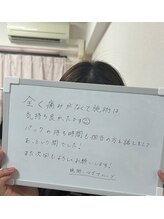 全く痛みがなくて施術は
気持ち良かったです
パックの待ち時間も担当の方と話しまして
あっという間でした!
また次回もよろしくお願いします。